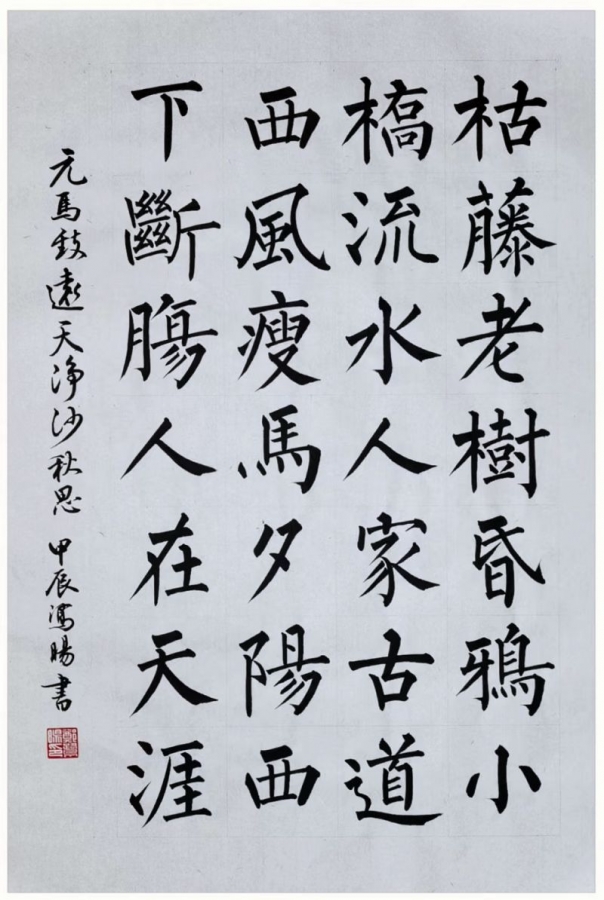 枯藤老樹昏鴉小
橋流水人家古道
西風瘦馬夕陽西
下斷腸人在天涯
元馬致遠天净沙秋思 甲辰馮暘書